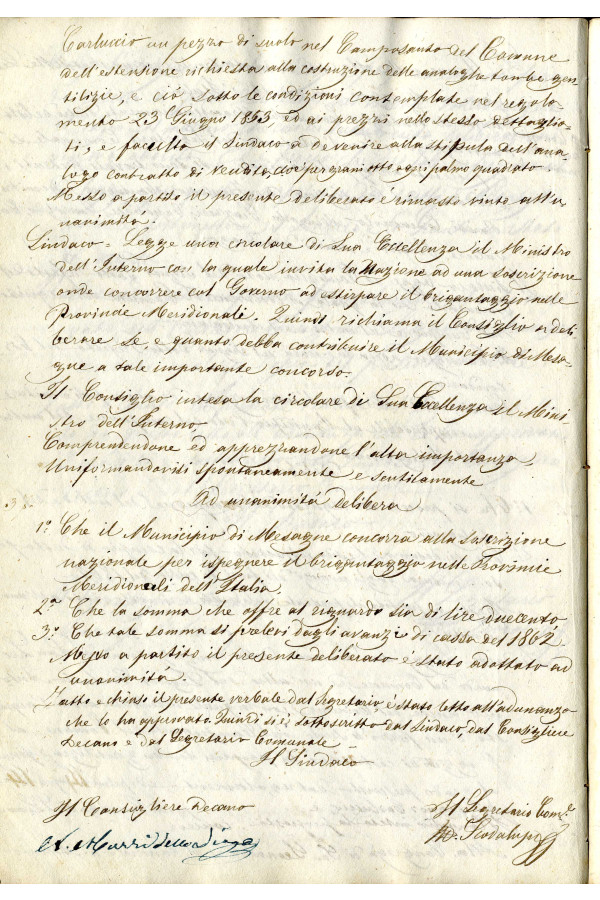 Carluccio un pezzo di suolo nel Camposanto del Comune
dell'estensione richiesta alla costruzione delle analoghe tombe gen
tilizie, e ciò sotto le condizioni contemplate nel regola
mento 23 Giugno 1853 ed ai prezzi nello stesso dettaglia
ti, e facultò il Sindaco a devenire alla stipula dell'ana
logo contratto di vendita, cioè per grani otto ogni palmo quadrato.
Messo a partito il presente deliberato è rimasto vinto all'u
nanimità.
Sindaco = Legge una circolare di Sua Eccellenza il Ministro
dell'Interno con la quale invita la Nazione ad una soscrizione
onde concorrere col Governo ad estirpare il brigantaggio nelle
Provincie Meridionali. Quindi richiama il Consiglio a deli
berare se, e quanto debba contribuire il Municipio di Mesa
gne a tale importante concorso.
Il Consiglio intesa la circolare di Sua Eccellenza il Mini
stro dell'Interno
Comprendendone ed apprezzandone l'alta importanza,
Uniformandovisi spontaneamente e sentitamente
Ad unanimità delibera
1° Che il Municipio di Mesagne concorra alla soscrizione
nazionale per ispegnere il brigantaggio nelle Provincie
Meridionali dell'Italia.
2° Che la somma che offre al riguardo sia di lire duecento
3° Che tale somma si prelevi dagli avanzi di cassa del 1862
Messo a partito il presente deliberato è stato adottato ad
unanimità.
Fatto e chiuso il presente verbale dal Segretario è stato letto all'adunanza
che lo ha approvato. Quindi si è sottoscritto dal Sindaco, dal Consigliere
Decano e dal Segretario Comunale
Il Sindaco
Il Consigliere Decano
Il Segretario Com.e